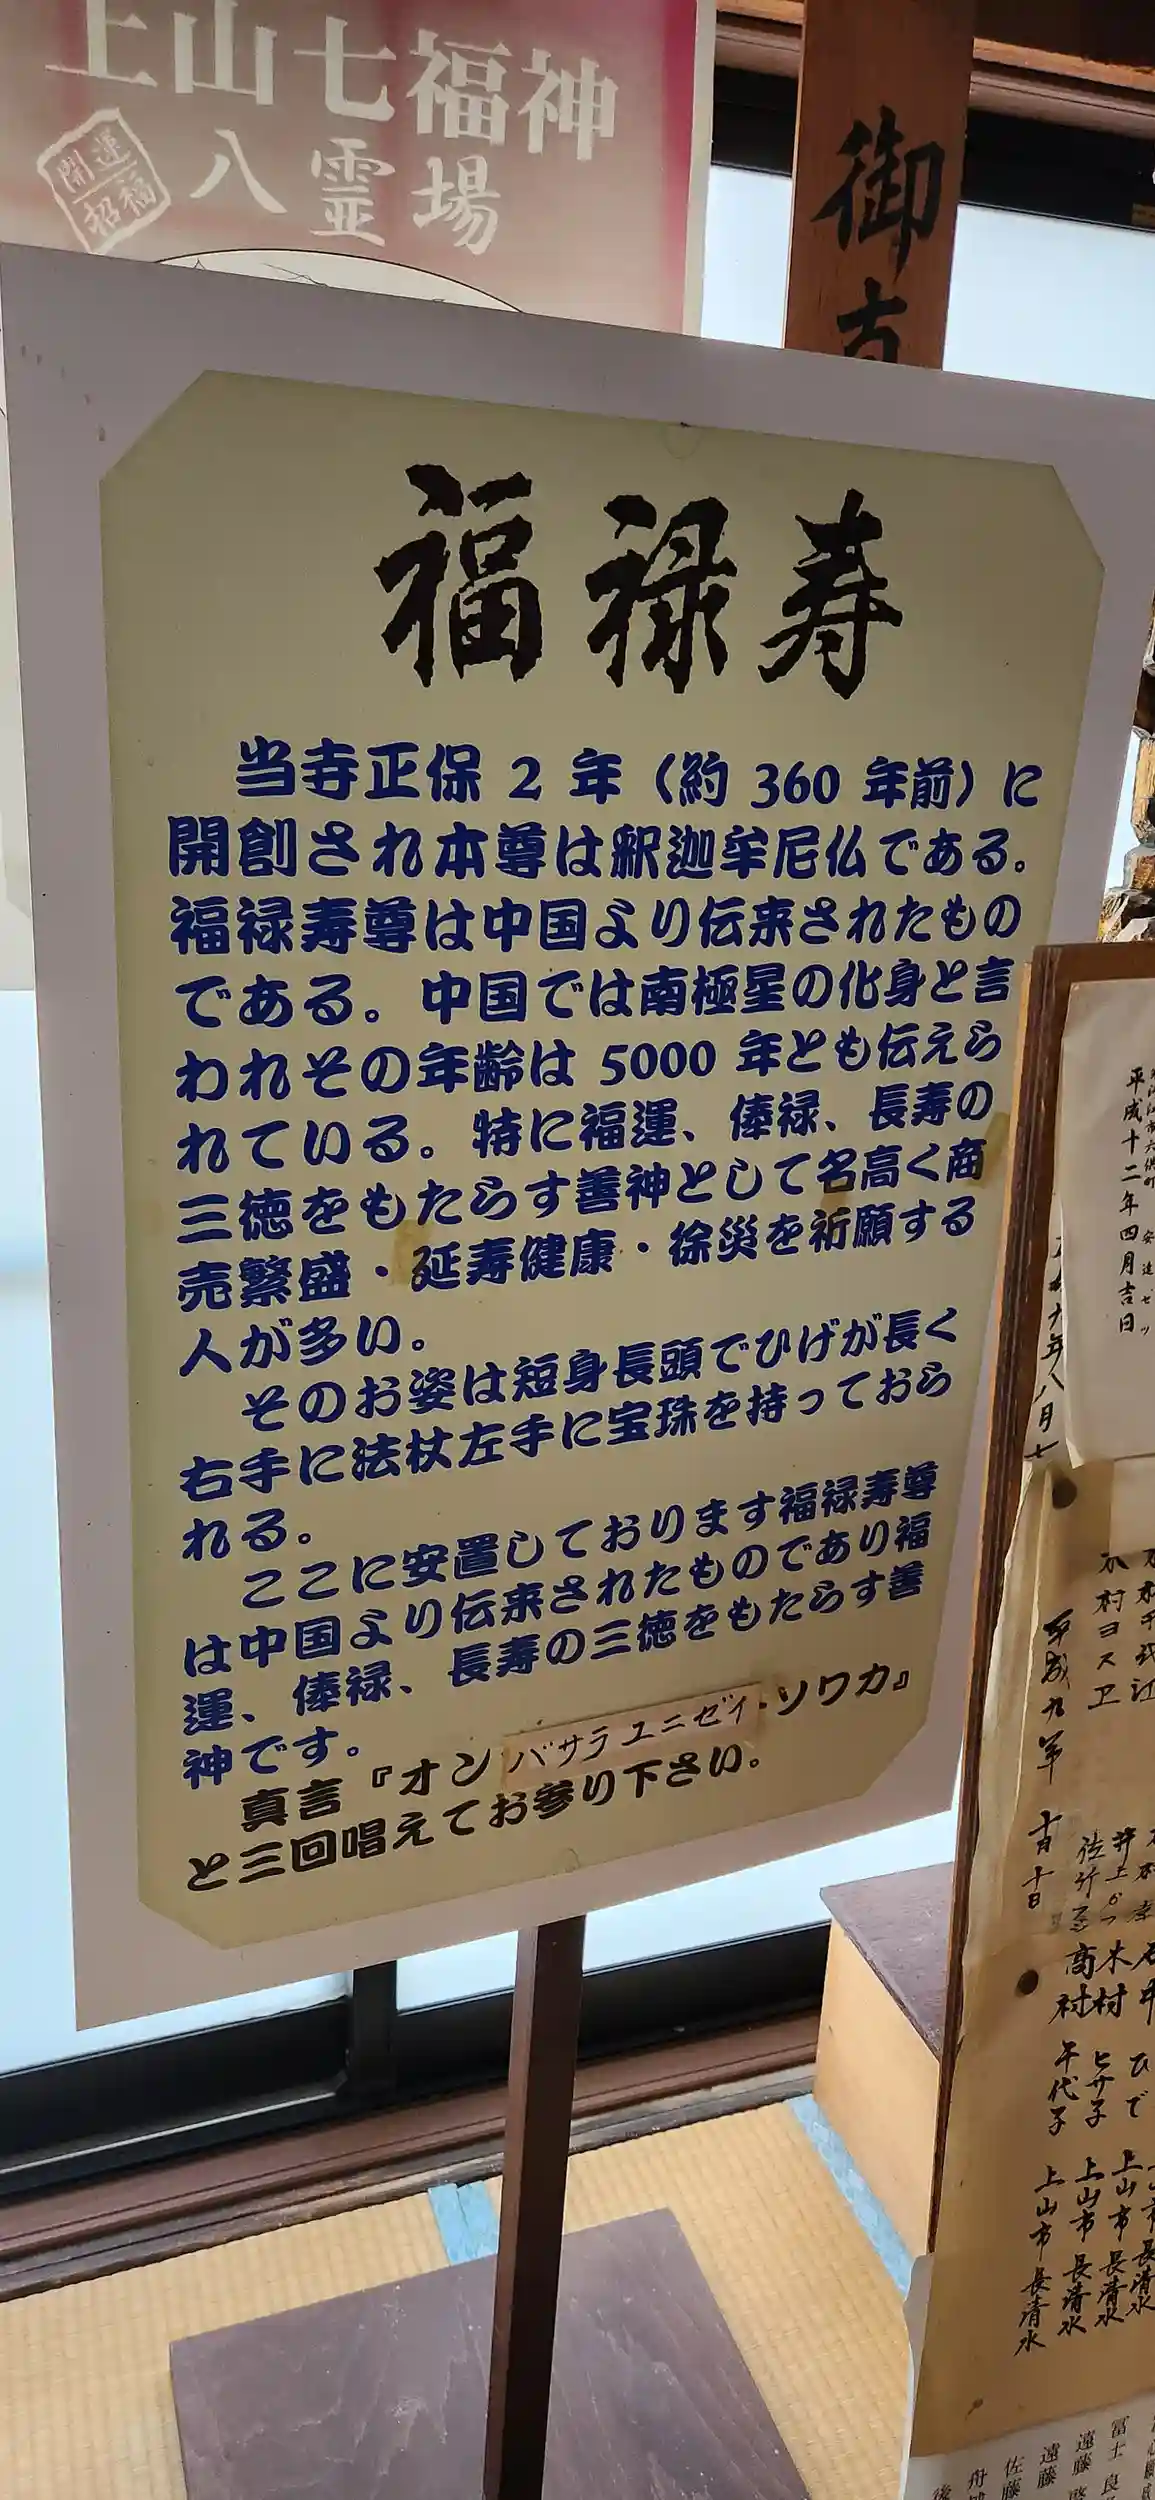 上山七福神
八霊場
開運招福
御
福禄寿
当寺正保 2 年（約 360 年前）に
開創され本尊は釈迦牟尼仏である。
福禄寿尊は中国より伝来されたもの
である。中国では南極星の化身と言
われその年齢は 5000 年とも伝えら
れている。特に福運、俸禄、長寿の
三徳をもたらす善神として名高く商
売繁盛・延寿健康・徐災を祈願する
人が多い。
そのお姿は短身長頭でひげが長く
右手に法杖左手に宝珠を持っておら
れる。
ここに安置しております福禄寿尊
は中国より伝来されたものであり福
運、俸禄、長寿の三徳をもたらす善
神です。
真言『オン バサラユニゼイ・ソワカ』
と三回唱えてお参り下さい。
平成十二年四月吉日
年八月
木村ヨスエ
平成九年 十月十日
木村 ヒサ子 上山市 長清水
高村 年代子 上山市 長清水
遠藤
遠藤
佐藤